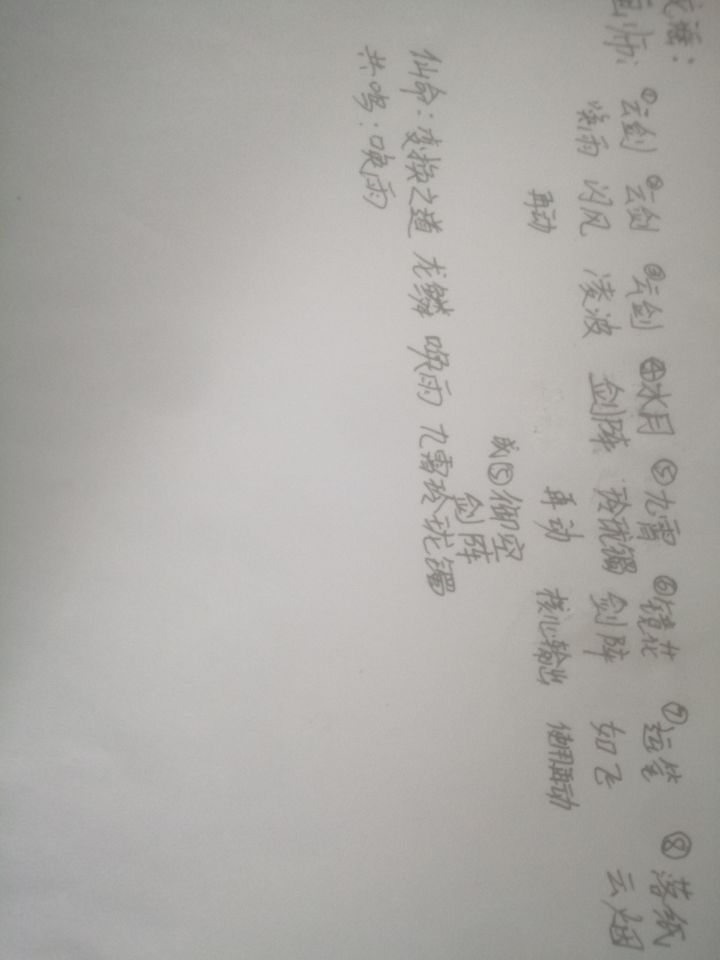 画师:
①云剑 ②云剑 ③云剑 ④水月 ⑤九霄 ⑥镜花 ⑦运笔 ⑧落纸
唤雨 闪风 凌波 剑阵 玲珑镯 剑阵 如飞 云烟
再动 再动 核心输出 使用再动
或⑤御空
剑阵
仙命:变换之道 龙鳞 唤雨 九霄玲珑镯
共鸣:唤雨